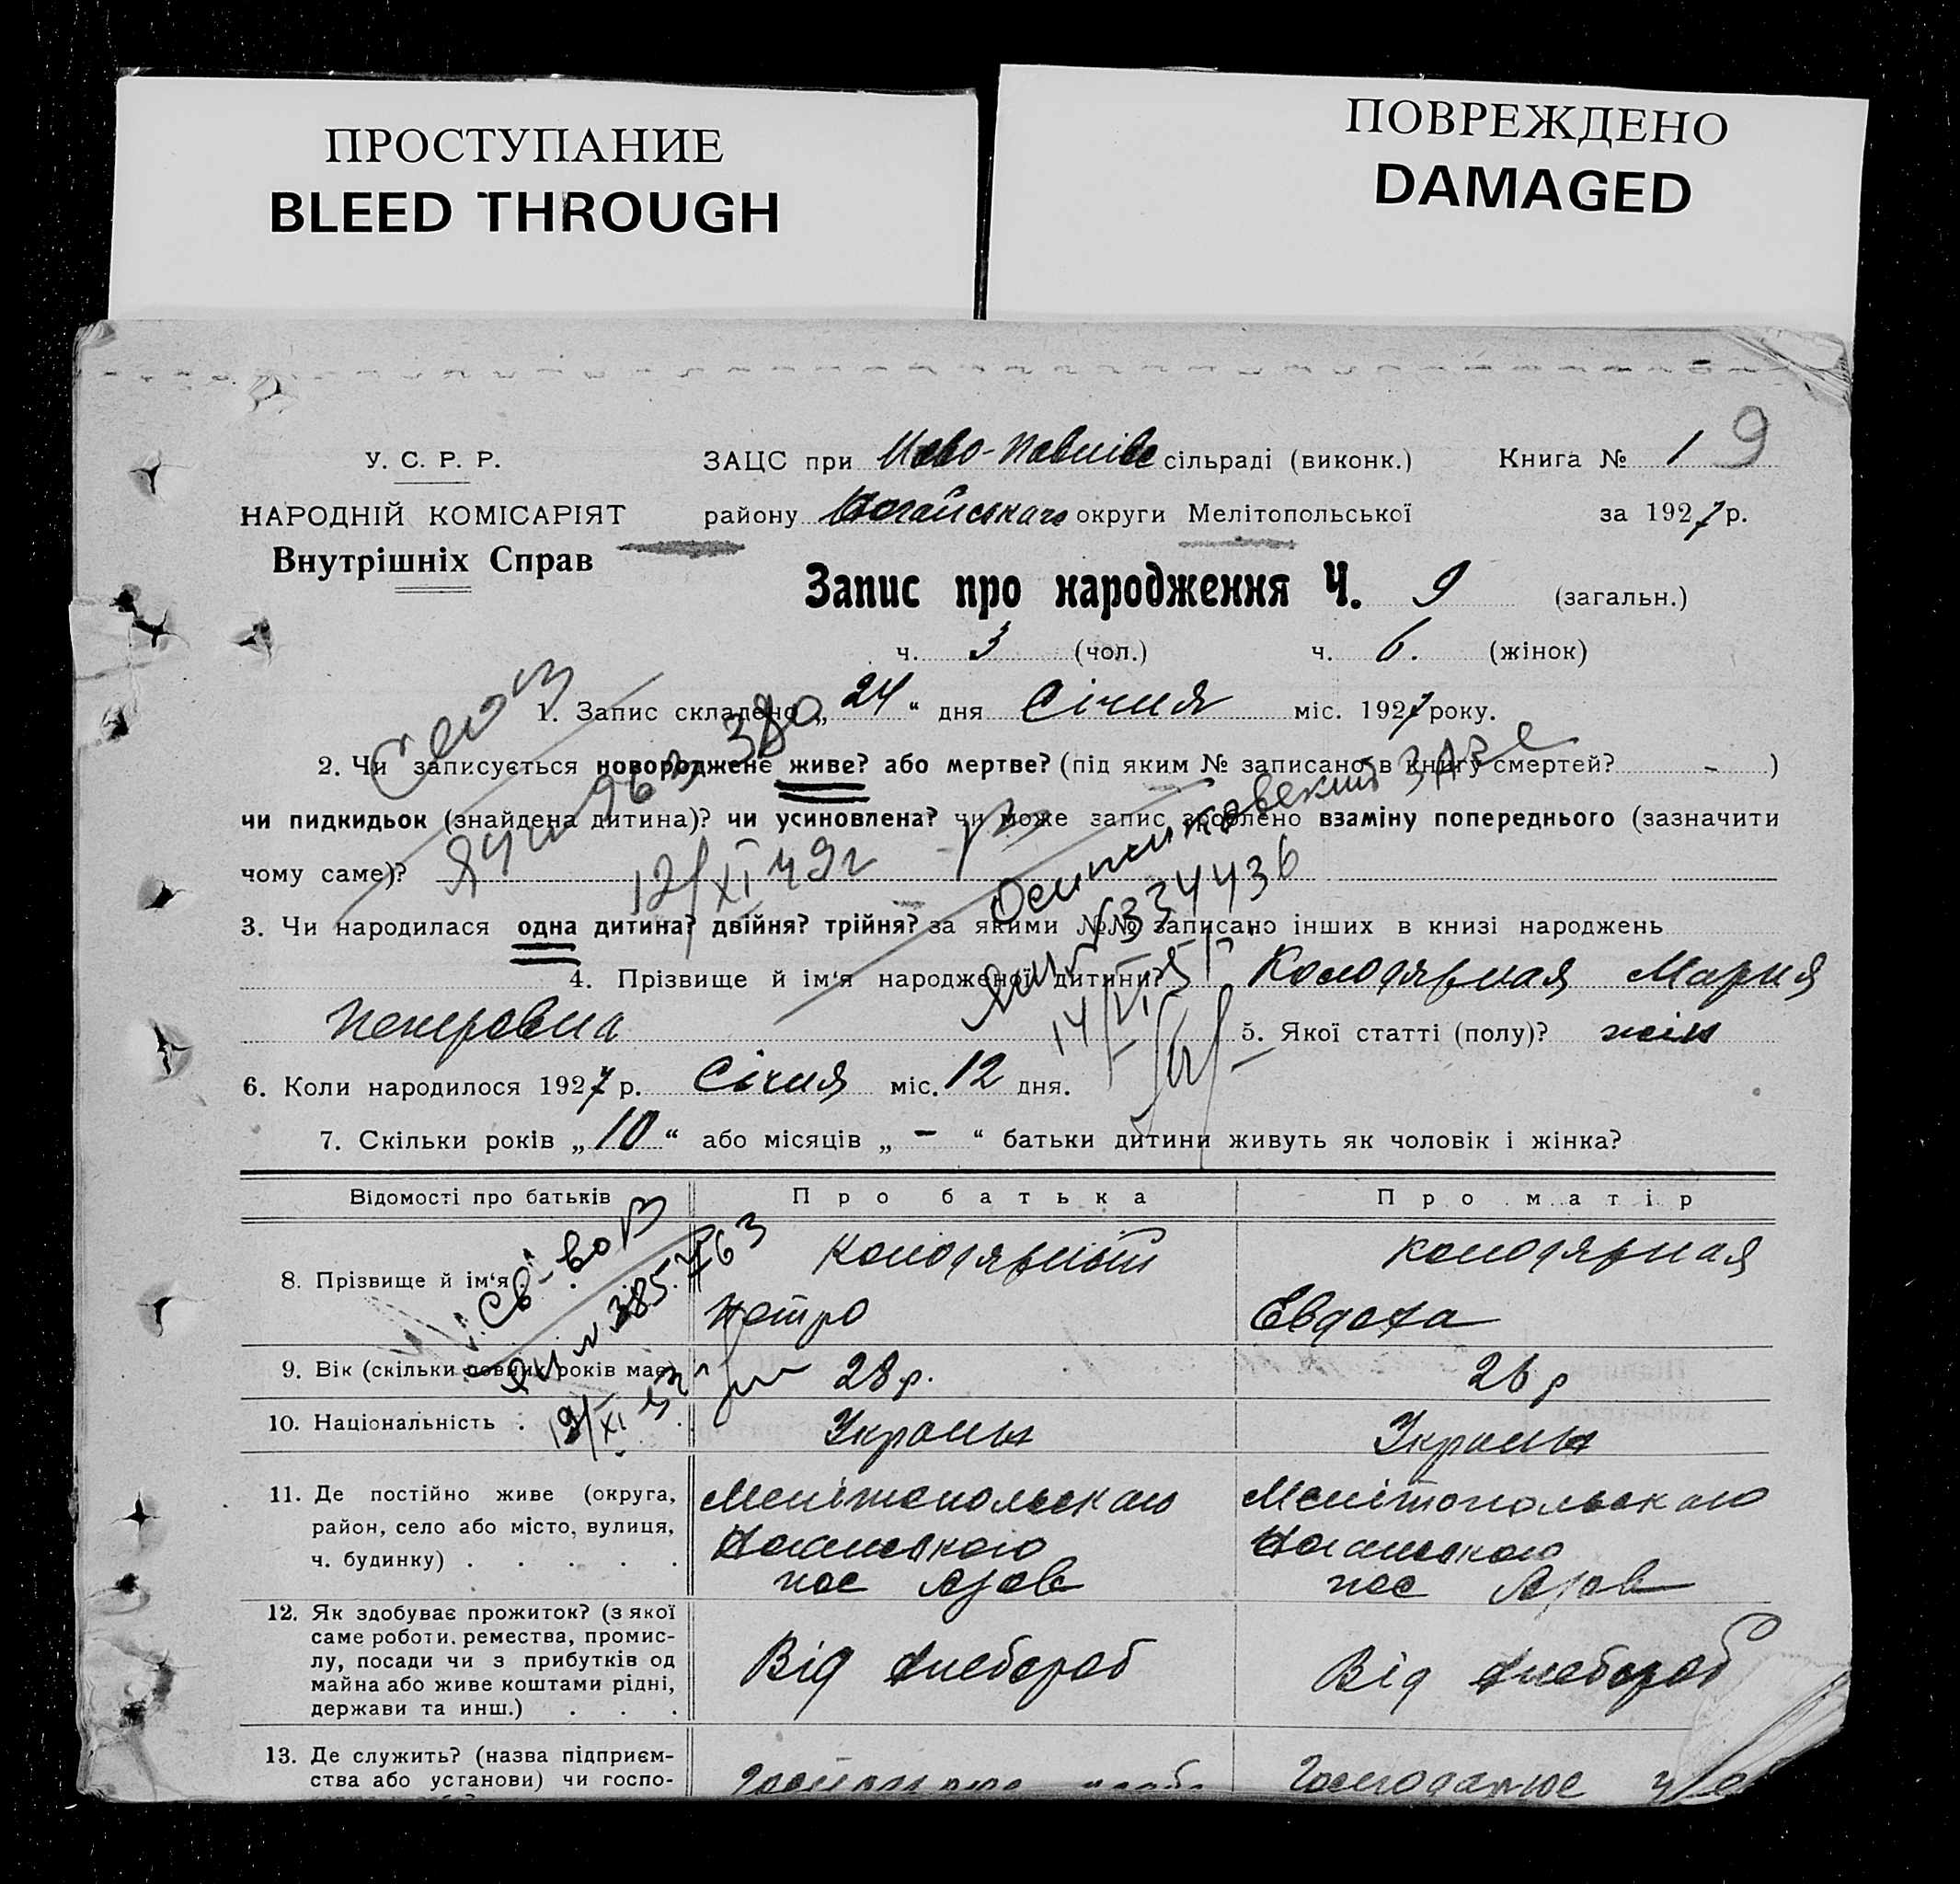 ПРОСТУПАНИЕ
BLEED THROUGH
ПОВРЕЖДЕНО
DAMAGED
У. С. Р. Р.
НАРОДНІЙ КОМІСАРІЯТ
Внутрішніх Справ
ЗАЦС при сільраді (виконк.) Книга № 1 9
району Ногайського округи Мелітопольської за 1927 р.
Запис про народження Ч. 9 (загальн.)
ч. 3 (чол.) ч. 6. (жінок)
1. Запис складено „ 24 “ дня Січня міс. 1927 року.
2. Чи записується новороджене живе? або мертве? (під яким № записано в книгу смертей? - )
чи пидкидьок (знайдена дитина)? чи усиновлена? чи може запис зроблено взаміну попереднього (зазначити
чому саме)?
12/XI 49г
334436
3. Чи народилася одна дитина? двійня? трійня? за якими №№ записано інших в книзі народжень
4. Прізвище й ім‘я народженої дитини? Колодярная Мария
Петровна 5. Якої статті (полу)? жін
6. Коли народилося 1927 р. Січня міс. 12 дня.
7. Скільки років „ 10 “ або місяців „ - “ батьки дитини живуть як чоловік і жінка?
Відомості про батьків Про батька Про матір
8. Прізвище й ім‘я Колодярный Колодярная
Петро Евдоха
9. Вік (скільки повних років має) 28 р. 26 р
10. Національність Україн Україн
11. Де постійно живе (округа, район, село або місто, вулиця, ч. будинку)
Мелітопольского Мелітопольского
Ногайського Ногайського
пос Азов пос Азов
12. Як здобуває прожиток? (з якої
саме роботи, ремества, промис-
лу, посади чи з прибутків од
майна або живе коштами рідні,
держави та инш.)
Від хлебороб Від хлебороб
13. Де служить? (назва підприєм-
ства або установи) чи госпо-